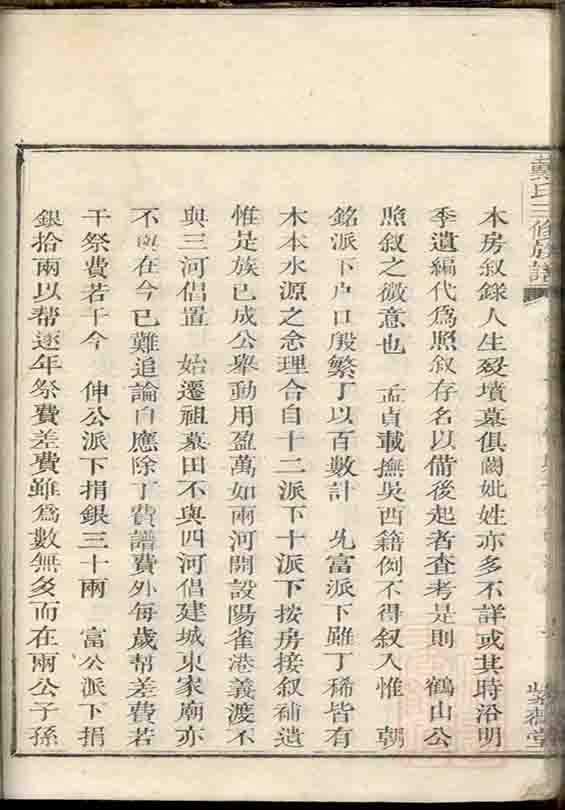 戴氏三修族譜
紫荷堂
本房叙錄人生殁墳墓俱闕妣姓亦多不詳或其時浴明
季遺編代爲照叙存名以備後起者查考是則 鶴山公
照叙之微意也 孟貞載撫吳西籍例不得叙入惟 朝
銘派下戶口殷繁丁以百數計 先富派下雖丁稀皆有
木本水源之念理合自十二派下十派下按房接叙補遺
惟是族已成公舉動用盈萬如兩河開設陽雀港義渡不
與三河倡置 始遷祖墓田不與四河倡建城東家廟亦
不與在今已難追論自應除丁費譜費外每歲幫差費若
干祭費若干今 伸公派下捐銀三十兩 富公派下捐
銀拾兩以幫逐年祭費差費雖爲數無多而在兩公子孫